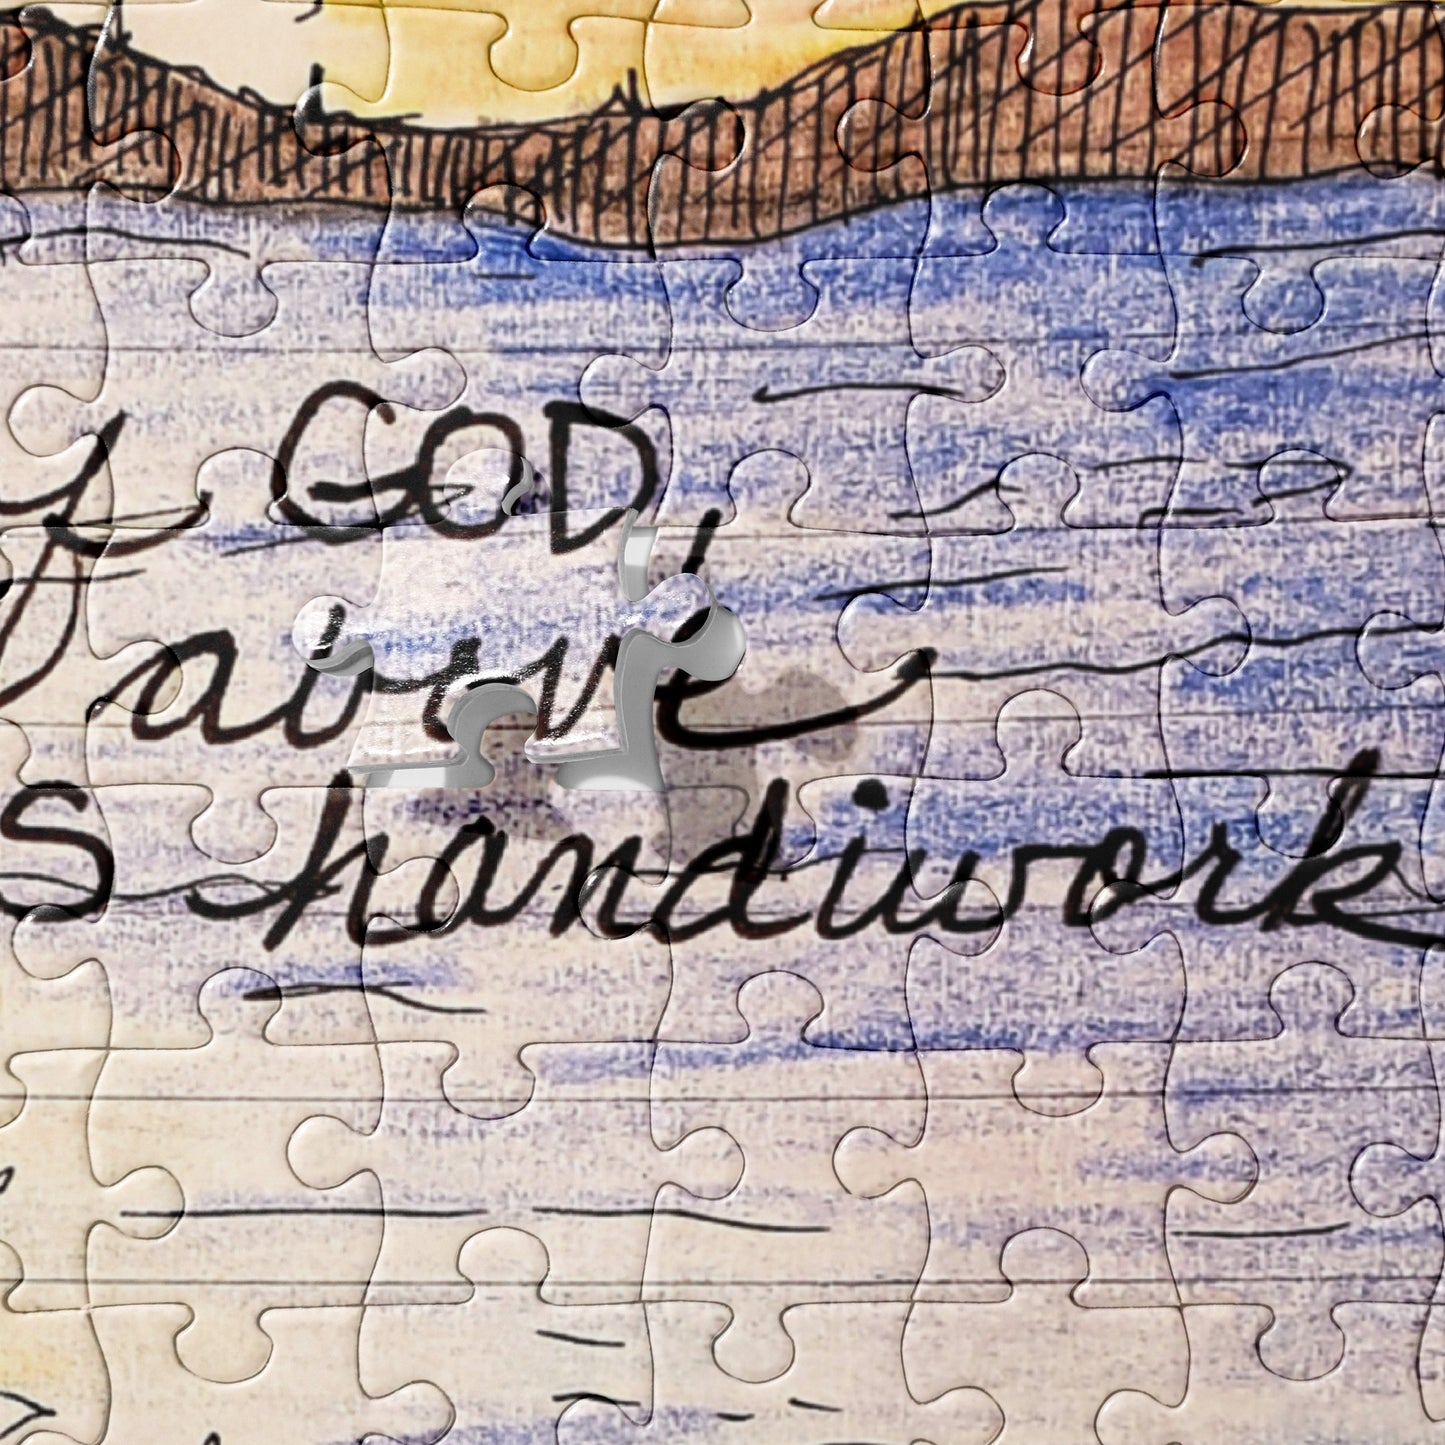 y GOD,
above
s handiwork